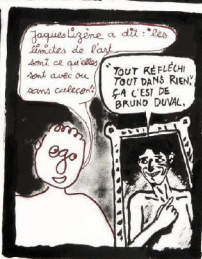 Jacques Lizène a dit: "les
limites de l'art
sont ce qu'elles
sont avec ou
sans caleçon".
"TOUT RÉFLÉCHI
TOUT DANS RIEN",
ÇA C'EST DE
BRUNO DUVAL.
ego